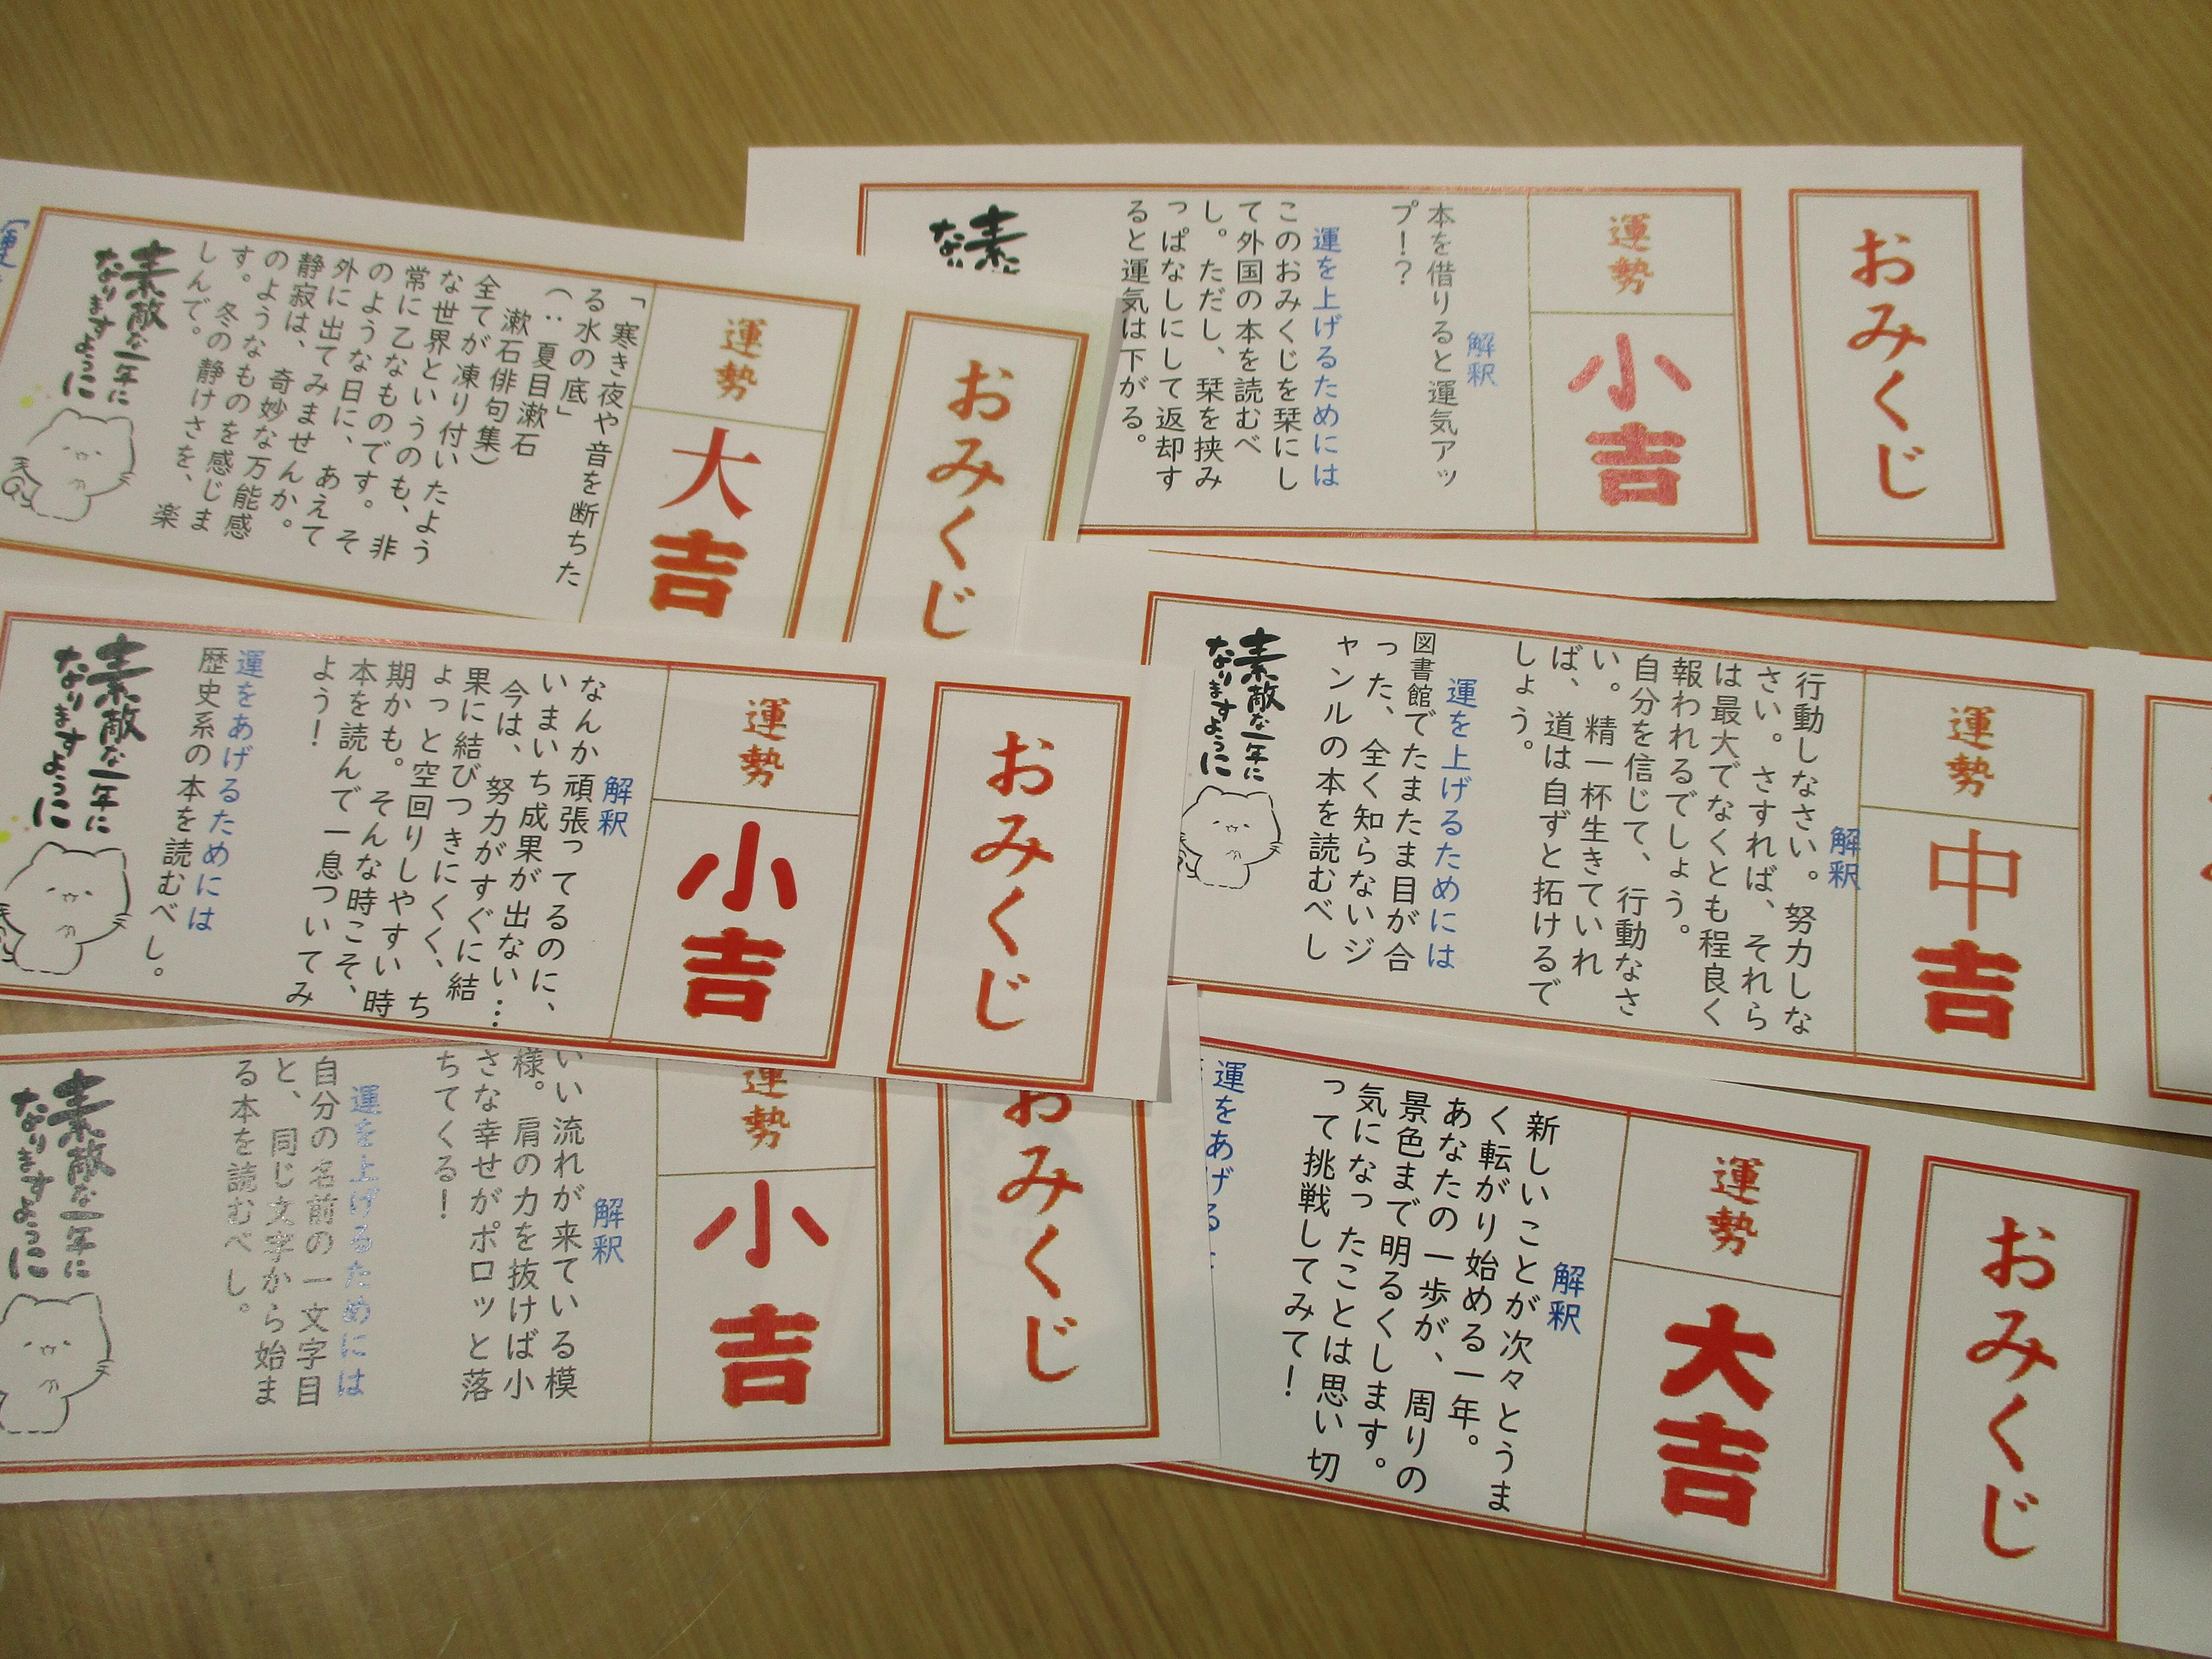 おみくじ
運勢
小吉
解釈
本を借りると運気アッ
プ！？
運を上げるためには
このおみくじを栞にし
て外国の本を読むべ
し。ただし、栞を挟み
っぱなしにして返却す
ると運気は下がる。
素
な
おみくじ
運勢
大吉
「寒き夜や音を断ちた
る水の底」
（：夏目漱石
漱石俳句集）
全てが凍り付いたよう
な世界というのも、非
常に乙なものです。そ
のような日に、あえて
外に出てみませんか。
静寂は、奇妙な万能感
のようなものを感じま
す。冬の静けさを、楽
しんで。
素敵な一年に
なりますように
運勢
中吉
解釈
行動しなさい。努力しな
さい。さすれば、それら
は最大でなくとも程良く
報われるでしょう。
自分を信じて、行動なさ
い。精一杯生きていれ
ば、道は自ずと拓けるで
しょう。
運を上げるためには
図書館でたまたま目が合
った、全く知らないジ
ャンルの本を読むべし
素敵な一年に
なりますように
おみくじ
運勢
小吉
解釈
なんか頑張ってるのに、
いまいち成果が出ない…
今は、努力がすぐに結
果に結びつきにくく、ち
ょっと空回りしやすい時
期かも。そんな時こそ、
本を読んで一息ついてみ
よう！
運をあげるためには
歴史系の本を読むべし。
素敵な一年に
なりますように
おみくじ
運勢
大吉
解釈
新しいことが次々とうま
く転がり始める一年。
あなたの一歩が、周りの
景色まで明るくします。
気になったことは思い切
って挑戦してみて！
運をあげる
おみくじ
運勢
小吉
解釈
いい流れが来ている模
様。肩の力を抜けば小
さな幸せがポロッと落
ちてくる！
運を上げるためには
自分の名前の一文字目
と、同じ文字から始ま
る本を読むべし。
素敵な一年に
なりますように